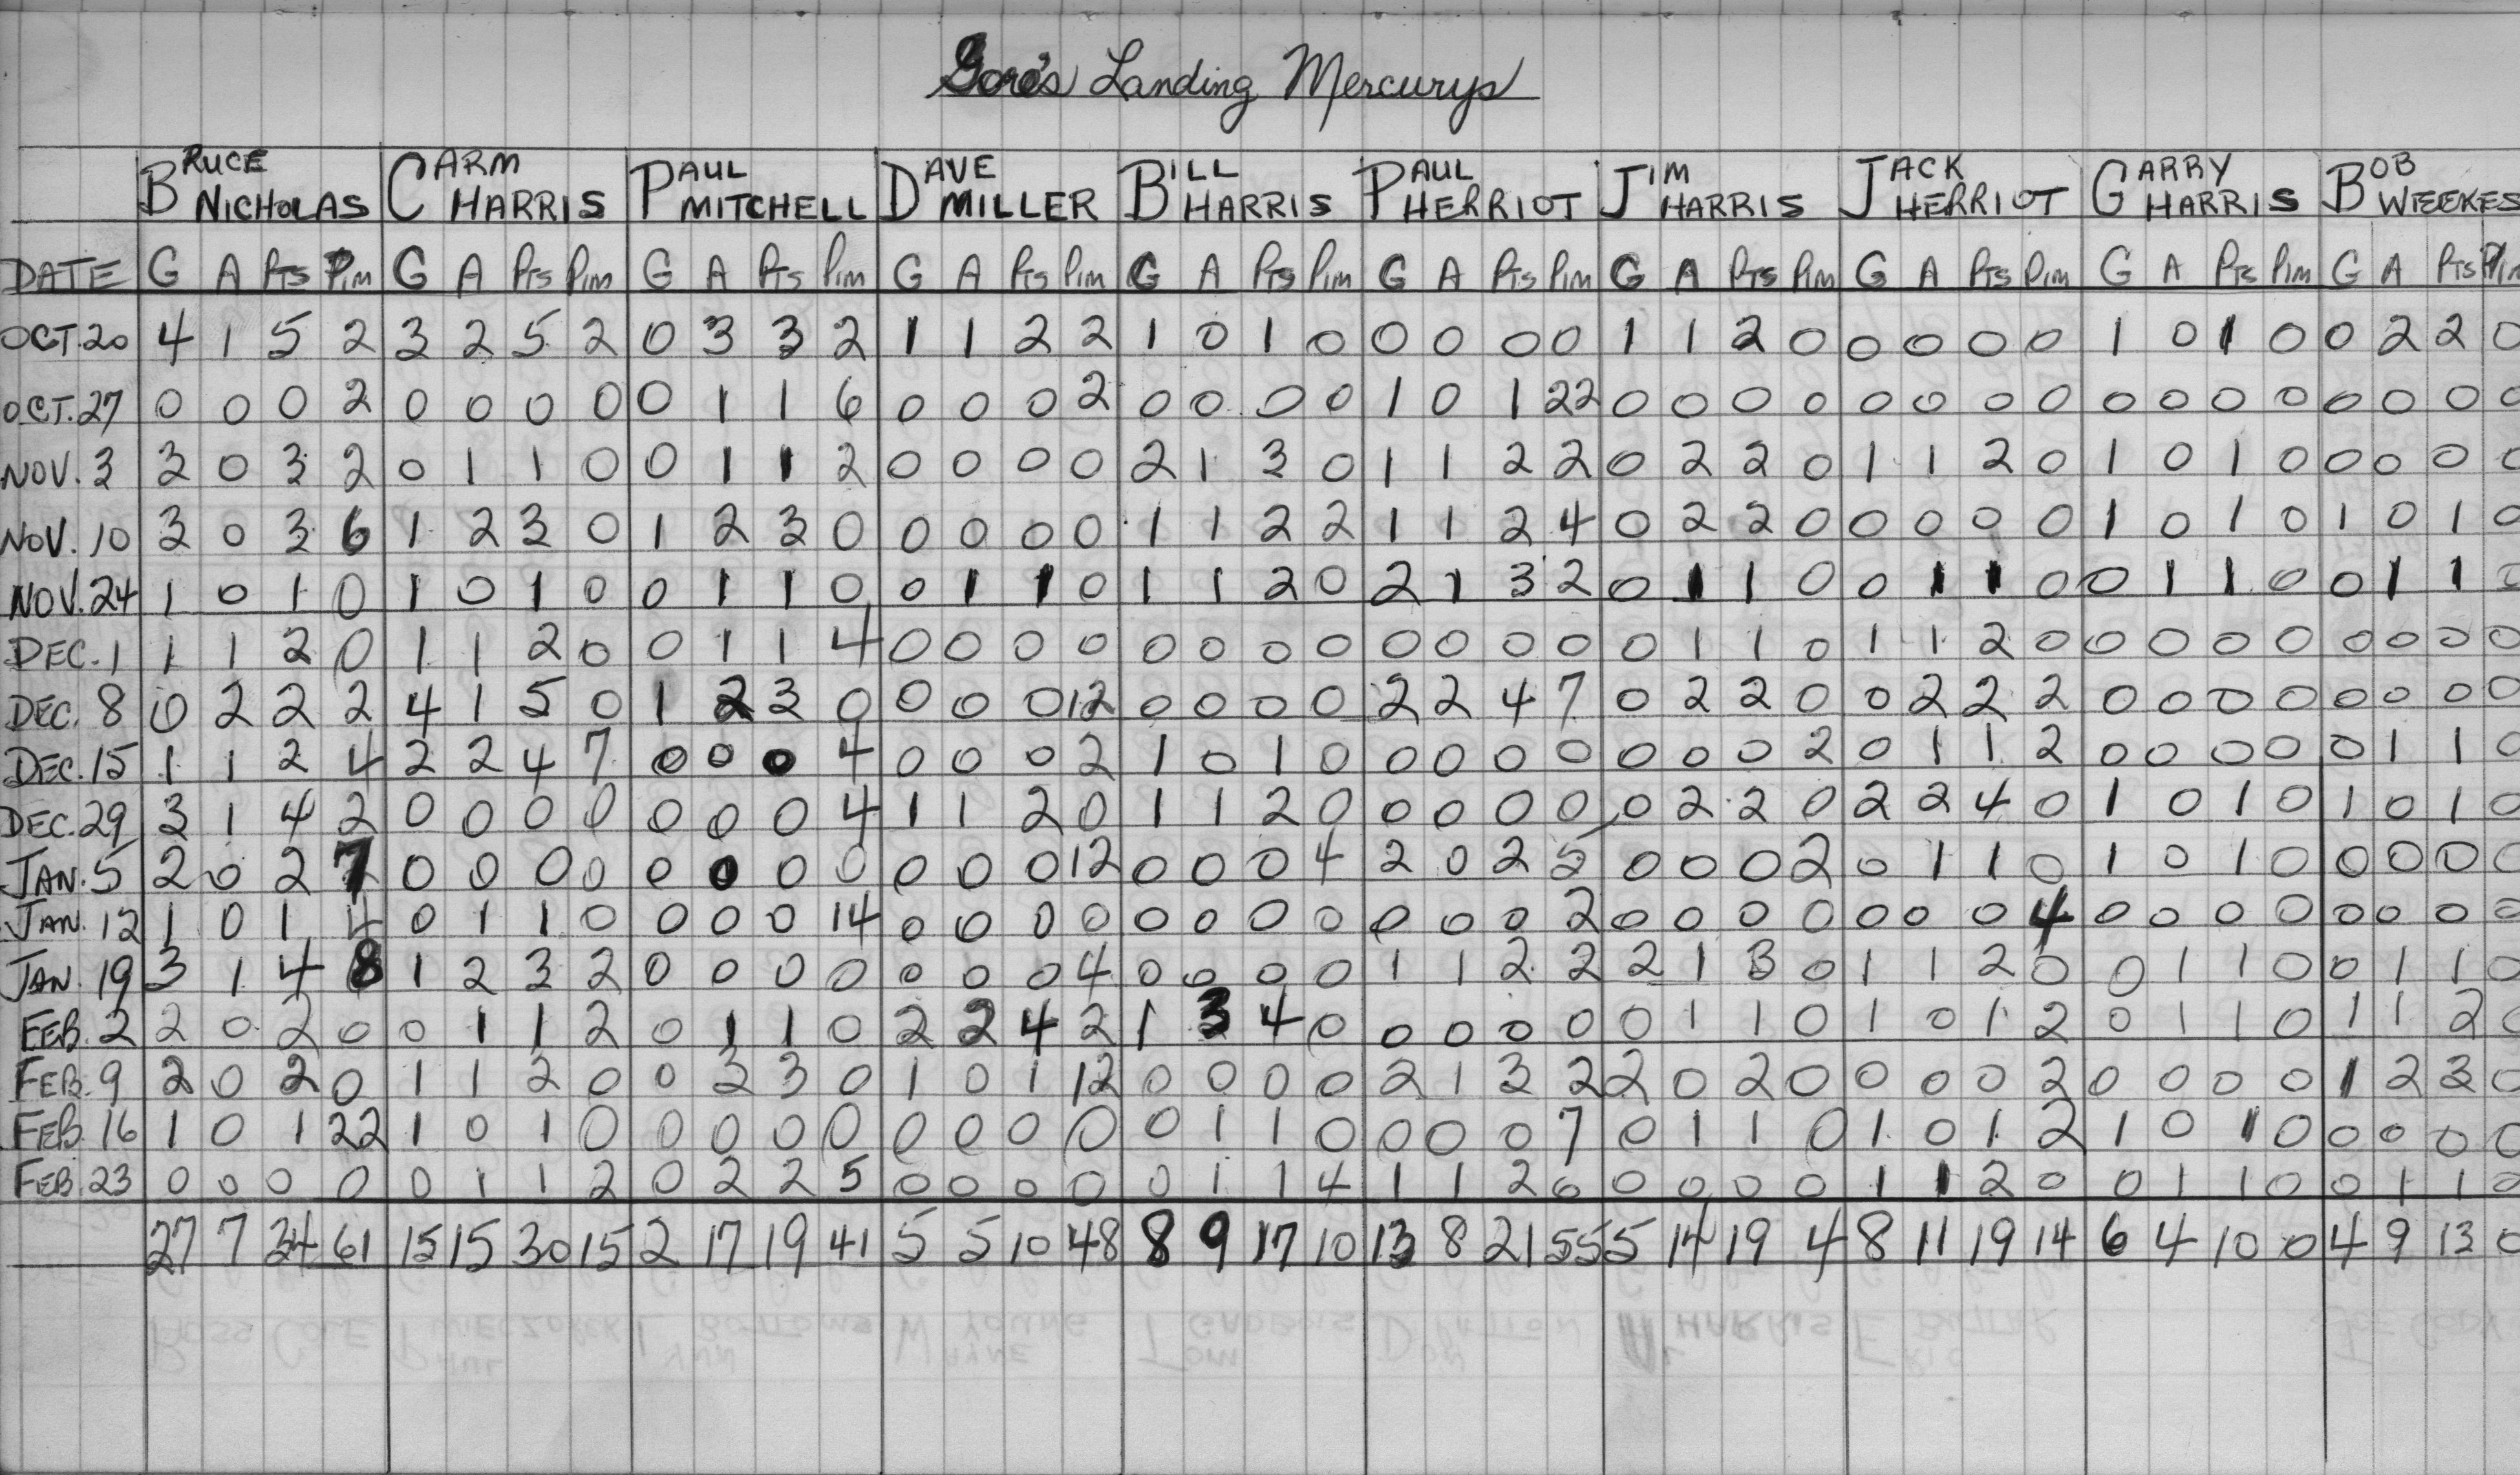 Gore's Landing Mercurys
BRUCE NICHOLAS CARM HARRIS PAUL MITCHELL DAVE MILLER BILL HARRIS PAUL HERRIOT JIM HARRIS JACK HERRIOT GARRY HARRIS BOB WEEKES
DATE G A Pts Pim G A Pts Pim G A Pts Pim G A Pts Pim G A Pts Pim G A Pts Pim G A Pts Pim G A Pts Pim G A Pts Pim G A Pts Pim
OCT.20 4 1 5 2 3 2 5 2 0 3 3 2 1 1 2 2 1 0 1 0 0 0 0 0 1 1 2 0 0 0 0 0 1 0 1 0 0 2 2 0
OCT.27 0 0 0 2 0 0 0 0 0 1 1 6 0 0 0 2 0 0 0 0 1 0 1 22 0 0 0 0 0 0 0 0 0 0 0 0 0 0 0 0
NOV. 3 3 0 3 2 0 1 1 0 0 1 1 2 0 0 0 0 2 1 3 0 1 1 2 2 0 2 2 0 1 1 2 0 1 0 1 0 0 0 0 0
NOV. 10 3 0 3 6 1 2 3 0 1 2 3 0 0 0 0 0 1 1 2 2 1 1 2 4 0 2 2 0 0 0 0 0 1 0 1 0 1 0 1 0
NOV. 24 1 0 1 0 1 0 1 0 0 1 1 0 0 1 1 0 1 1 2 0 2 1 3 2 0 1 1 0 0 1 1 0 0 1 1 0 0 1 1 0
DEC. 1 1 1 2 0 1 1 2 0 0 1 1 4 0 0 0 0 0 0 0 0 0 0 0 0 0 1 1 0 1 1 2 0 0 0 0 0 0 0 0 0
DEC. 8 0 2 2 2 4 1 5 0 1 2 3 0 0 0 0 12 0 0 0 0 2 2 4 7 0 2 2 0 0 2 2 2 0 0 0 0 0 0 0 0
DEC. 15 1 1 2 4 2 2 4 7 0 0 0 4 0 0 0 2 1 0 1 0 0 0 0 0 0 0 0 2 0 1 1 2 0 0 0 0 0 1 1 0
DEC. 29 3 1 4 2 0 0 0 0 0 0 0 4 1 1 2 0 1 1 2 0 0 0 0 0 0 2 2 0 2 2 4 0 1 0 1 0 1 0 1 0
JAN. 5 2 0 2 7 0 0 0 0 0 0 0 0 0 0 0 12 0 0 0 4 2 0 2 5 0 0 0 2 0 1 1 0 1 0 1 0 0 0 0 0
JAN. 12 1 0 1 4 0 1 1 0 0 0 0 14 0 0 0 0 0 0 0 0 0 0 0 2 0 0 0 0 0 0 0 4 0 0 0 0 0 0 0 0
JAN. 19 3 1 4 8 1 2 3 2 0 0 0 0 0 0 0 4 0 0 0 0 1 1 2 2 2 1 3 0 1 1 2 0 0 1 1 0 0 1 1 0
FEB. 2 2 0 2 0 0 1 1 2 0 1 1 0 2 2 4 2 1 3 4 0 0 0 0 0 0 1 1 0 1 0 1 2 0 1 1 0 1 1 2 0
FEB. 9 2 0 2 0 1 1 2 0 0 3 3 0 1 0 1 12 0 0 0 0 2 1 3 2 2 0 2 0 0 0 0 2 0 0 0 0 1 2 3 0
FEB. 16 1 0 1 22 1 0 1 0 0 0 0 0 0 0 0 0 0 1 1 0 0 0 0 7 0 1 1 0 1 0 1 2 1 0 1 0 0 0 0 0
FEB. 23 0 0 0 0 0 1 1 2 0 2 2 5 0 0 0 0 0 1 1 4 1 1 2 0 0 0 0 0 1 1 2 0 0 1 1 0 0 1 1 0
27 7 34 61 15 15 30 15 2 17 19 41 5 5 10 48 8 9 17 10 13 8 21 55 5 14 19 4 8 11 19 14 6 4 10 0 4 9 13 0